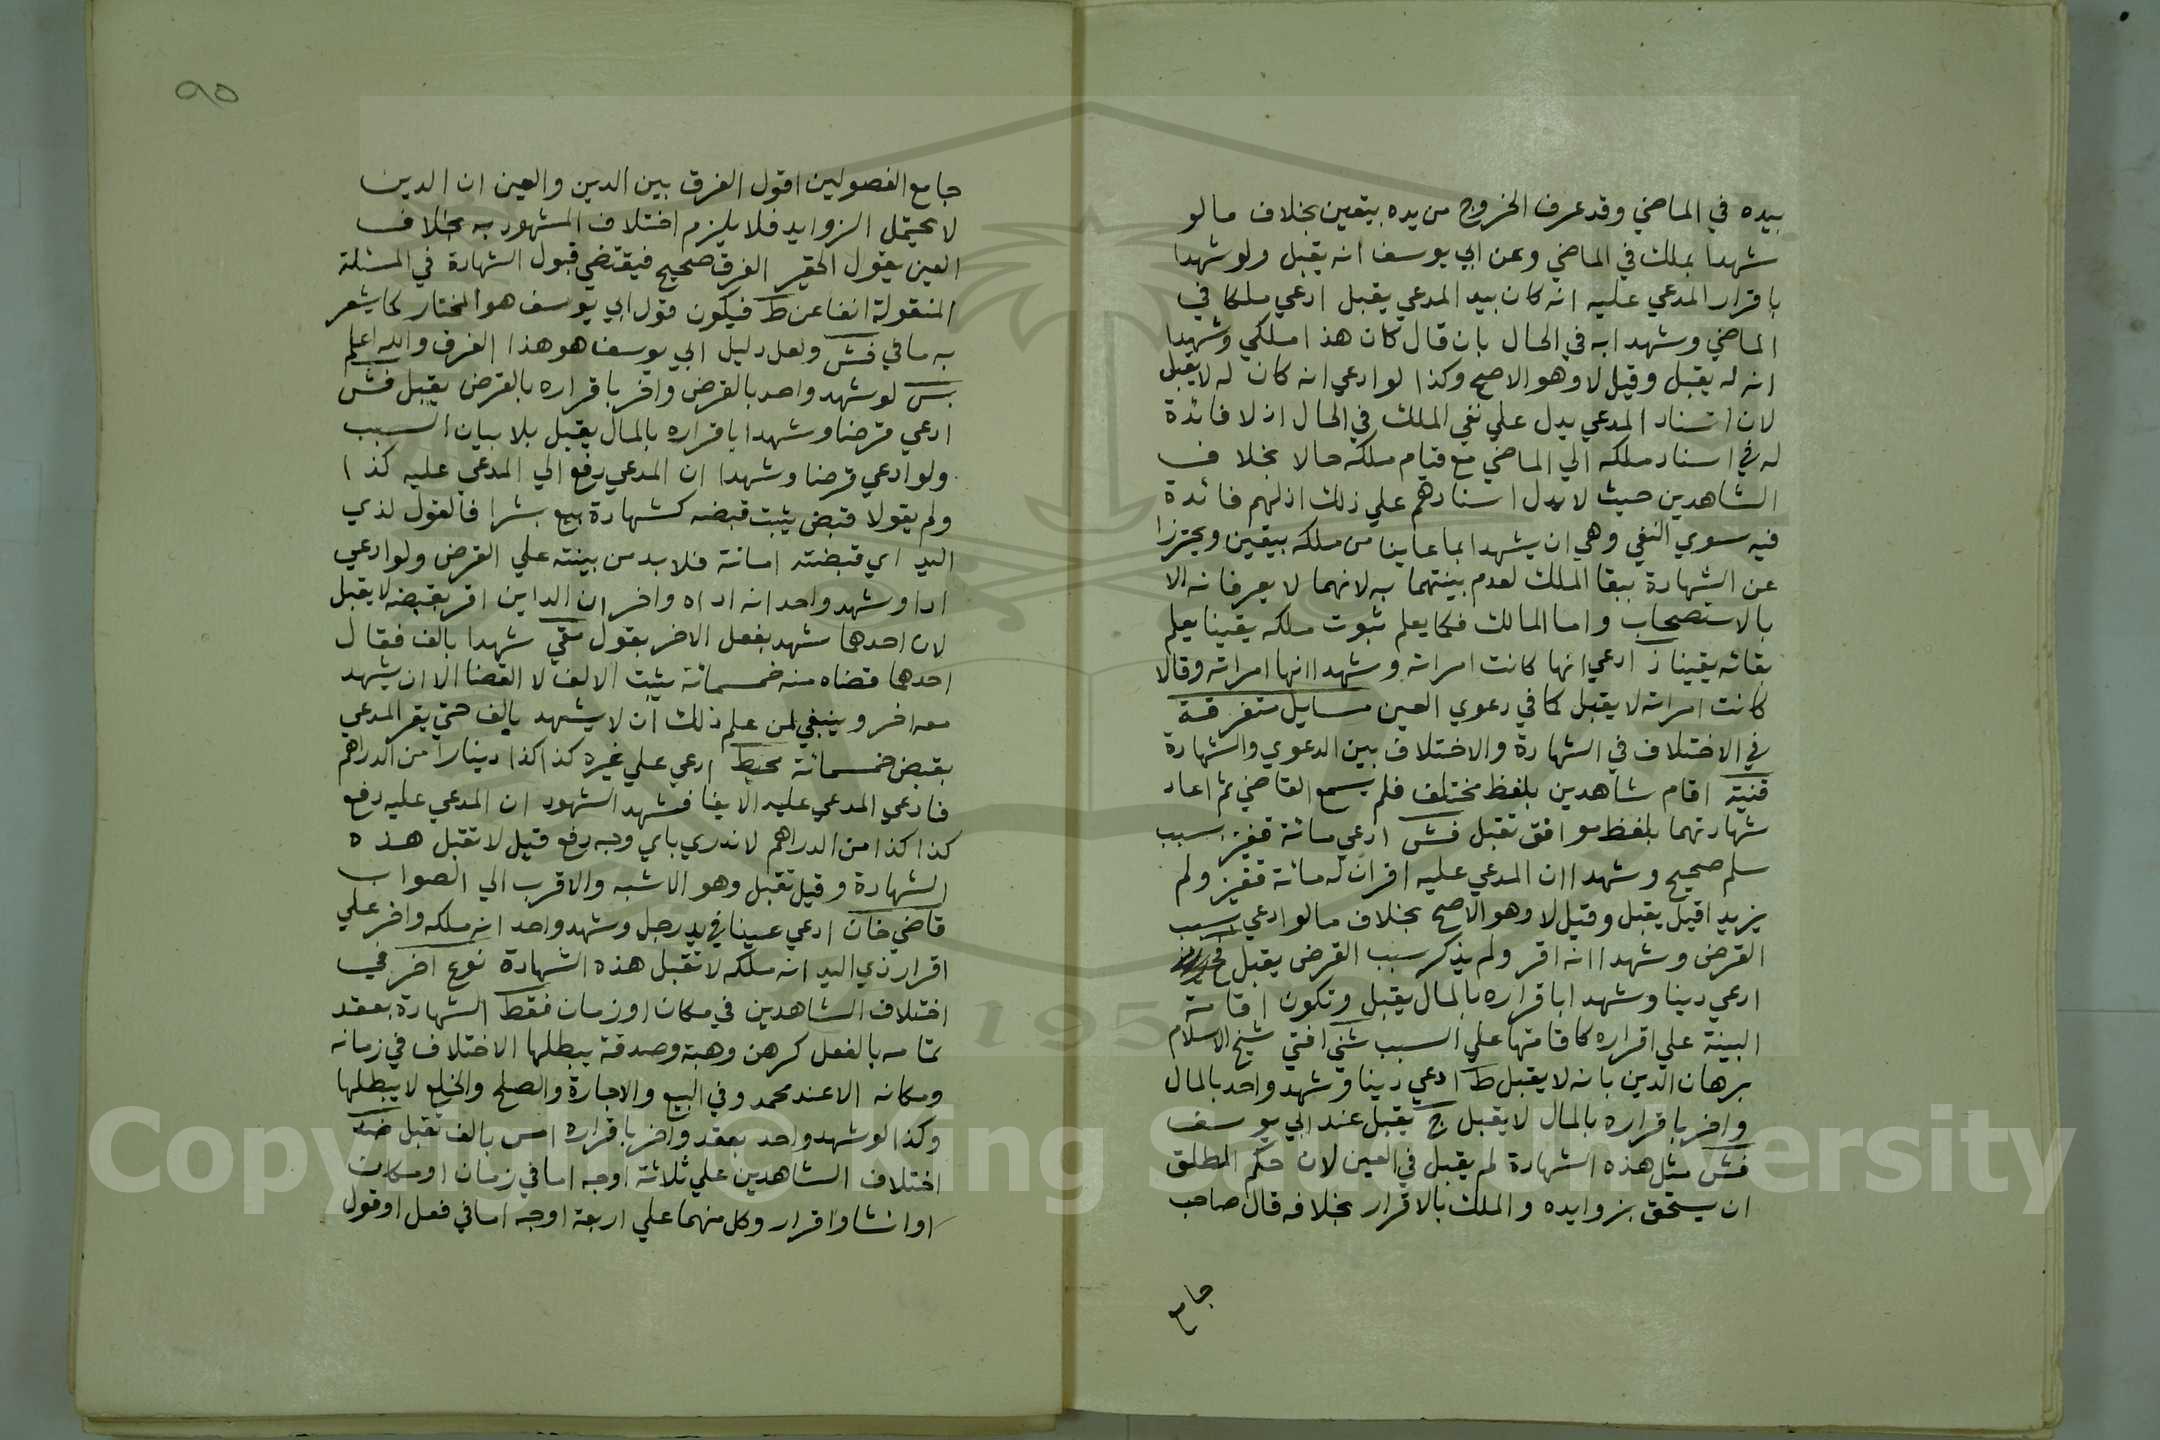 بيده في الماضي وقد عرف الخروج من يده بيقين بخلاف ما لو
شهدا بملك في الماضي وعن ابي يوسف انه يقبل ولو شهدا
باقرار المدعي عليه انه كان بيد المدعي يقبل ادعي ملكا في
الماضي وشهدا به في الحال بان قال كان هذا ملكي وشهدا
انه له يقبل وقيل لا وهو الاصح وكذا لو ادعي انه كان له لا يقبل
لان اسناد المدعي يدل علي نفي الملك في الحال اذ لا فائدة
له في اسناد ملكه الي الماضي مع قيام ملكه حالا بخلاف
الشاهدين حيث لا يدل اسنادهم علي ذلك اذ لهم فائدة
فيه سوي النفي وهي ان يشهدا بما عاينا من ملكه بيقين ويحترزا
عن الشهادة ببقا الملك لعدم بينتهما به لانهما لا يعرفانه الا
بالاستصحاب واما المالك فكما يعلم ثبوت ملكه يقينا يعلم
بقائه يقينا ذ ادعي انها كانت امراته وشهدا انها امراته وقالا
كانت امراته لا يقبل كما في دعوي العين مسايل متفرقة
في الاختلاف في الشهادة والاختلاف بين الدعوي والشهادة
قنية اقام شاهدين بلفظ مختلف فلم يسمع القاضي ثم اعاد
شهادتهما بلفظ موافق تقبل فش ادعي مائة قفيز بسبب
سلم صحيح وشهدا ان المدعي عليه اقر ان له مائة قفيز ولم
يزيدا قيل يقبل وقيل لا وهو الاصح بخلاف ما لو ادعي بسبب
القرض وشهدا انه اقر ولم يذكر سبب القرض يقبل
ادعي دينا وشهدا باقراره بالمال يقبل وتكون اقامة
البينة علي اقراره كاقامتها علي السبب شي افتي شيخ الاسلام
برهان الدين بانه لا يقبل ط ادعي دينا وشهد واحد بالمال
واخر باقراره بالمال لا يقبل ج يقبل عند ابي يوسف
فش مثل هذه الشهادة لم يقبل في العين لان حكم المطلق
ان يستحق بزوايده والملك بالاقرار بخلافه قال صاحب
جامع
٩٥
جامع الفصولين اقول الفرق بين الدين والعين ان الدين
لا يحتمل الزوايد فلا يلزم اختلاف المشهود به بخلاف
العين يقول الحقير الفرق صحيح فيقتضي قبول الشهادة في المسئلة
المنقولة انفا عن ط فيكون قول ابي يوسف هو المختار كما يشعر
به ما في فش ولعل دليل ابي يوسف هو هذا الفرق والله اعلم
بس لو شهد واحد بالقرض واخر باقراره بالقرض يقبل فش
ادعي قرضا وشهدا باقراره بالمال يقبل بلا بيان السبب
ولو ادعي قرضا وشهدا ان المدعي دفع الي المدعي عليه كذا
ولم يقولا قبض يثبت قبضه كشهادة بيع بشرا فالقول لذي
اليد اي قبضته امانة فلا بد من بينته علي القرض ولو ادعي
ادا وشهد واحد انه اداه واخر ان الداين اقر بقبضه لا يقبل
لان احدهما شهد بفعل الاخر بقول شهدا بالف فقال
احدهما قضاه منه خمسمائة يثبت الالف لا القضا الا ان يشهد
معه اخر وينبغي لمن علم ذلك ان لا يشهد بالف حتي يقر المدعي
بقبض خمسمائة محيط ادعي علي غيره كذا كذا دينارا من الدراهم
فادعي المدعي عليه الايفا فشهد الشهود ان المدعي عليه دفع
كذا كذا من الدراهم لا ندري باي وجه دفع قيل لا تقبل هذه
الشهادة وقيل تقبل وهو الاشبه والاقرب الي الصواب
قاضي خان ادعي عينا في يد رجل وشهد واحد انه ملكه واخر علي
اقرار ذي اليد انه ملكه لا تقبل هذه الشهادة نوع اخر في
اختلاف الشاهدين في مكان او زمان فقط الشهادة بعقد
تمامه بالفعل كرهن وهبة وصدقة يبطلها الاختلاف في زمانه
ومكانه الا عند محمد وفي البيع والاجارة والصلح والخلع لا يبطلها
وكذا لو شهد واحد بعقد واخر باقراره امس بالف تقبل
اختلاف الشاهدين علي ثلاثة اوجه اما في زمان او مكان
او انشا واقرار وكل منهما علي اربعة اوجه اما في فعل او قول
Copyright © King Saud University
195